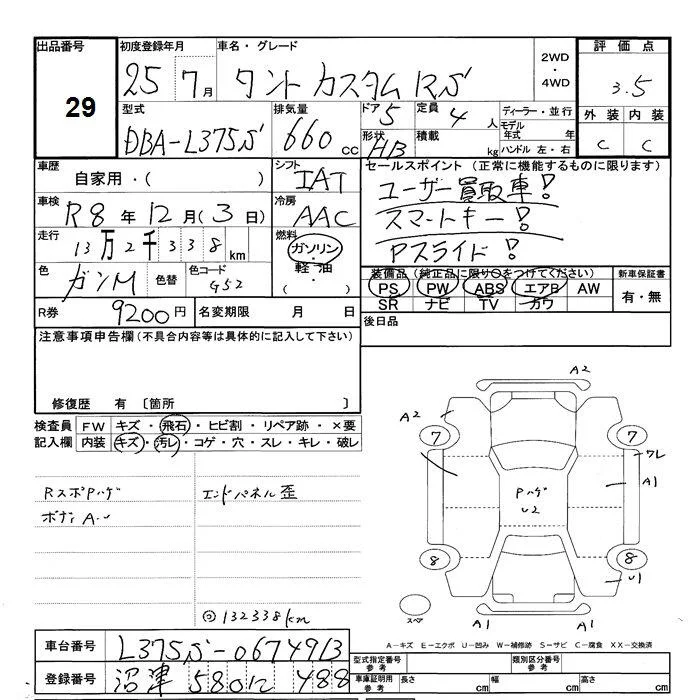 出品番号
29
初度登録年月 車名・グレード 2WD・4WD 評価点
25 7月 タント カスタム RS 3.5
外装 内装
C C
型式 排気量 ドア 定員 ディーラー・並行
DBA-L375S 660cc 5 4人 モデル年式 年式
形状 積載 ハンドル 左・右
HB kg
車歴 自家用・( )
シフト IAT
車検 R8年12月(3日)
冷房 AAC
走行 13万2千338km
燃料 ガソリン・軽油・( )
色 ガンM 色替 色コード G52
R券 9200円 名変期限 月 日
セールスポイント (正常に機能するものに限ります)
ユーザー買取車!
スマートキー!
Pスライド!
装備品(純正品に限り○をつけてください) 新車保証書
PS PW ABS エアB AW 有・無
SR ナビ TV カワ
後日品
注意事項申告欄(不具合内容等は具体的に記入して下さい)
修復歴 有 〔箇所 〕
検査員記入欄
FW キズ・飛石・ヒビ割・リペア跡・×要
内装 キズ・汚レ・コゲ・穴・スレ・キレ・破レ
Rスポアハゲ
ボディA・U
エンドパネル歪
◎132338km
A2
A2
7 7
ワレ
A1
Pハゲ
U2
8 8
U1
A1 A1
スペア
A-キズ E-エクボ U-凹み W-補修跡 S-サビ C-腐食 XX-交換済
車台番号 L375S-0674913
登録番号 沼津 580 に 488
型式指定番号 参考 類別区分番号 参考
車庫証明用 参考 長さ cm 幅 cm 高さ cm